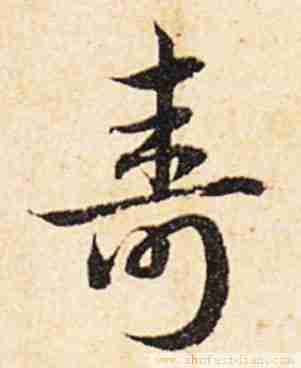 寿
www.shufazidian.com